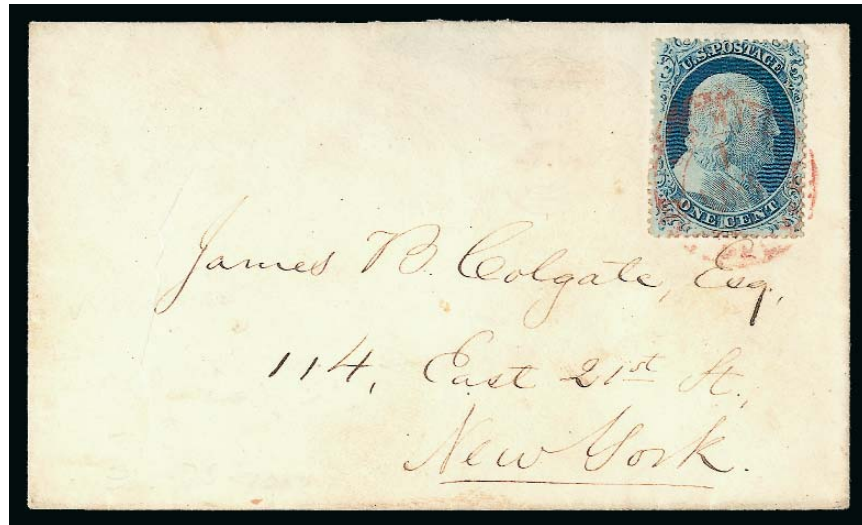 U.S. POSTAGE
ONE CENT
James B. Colgate, Esq,
114, East 21st St.,
New York.